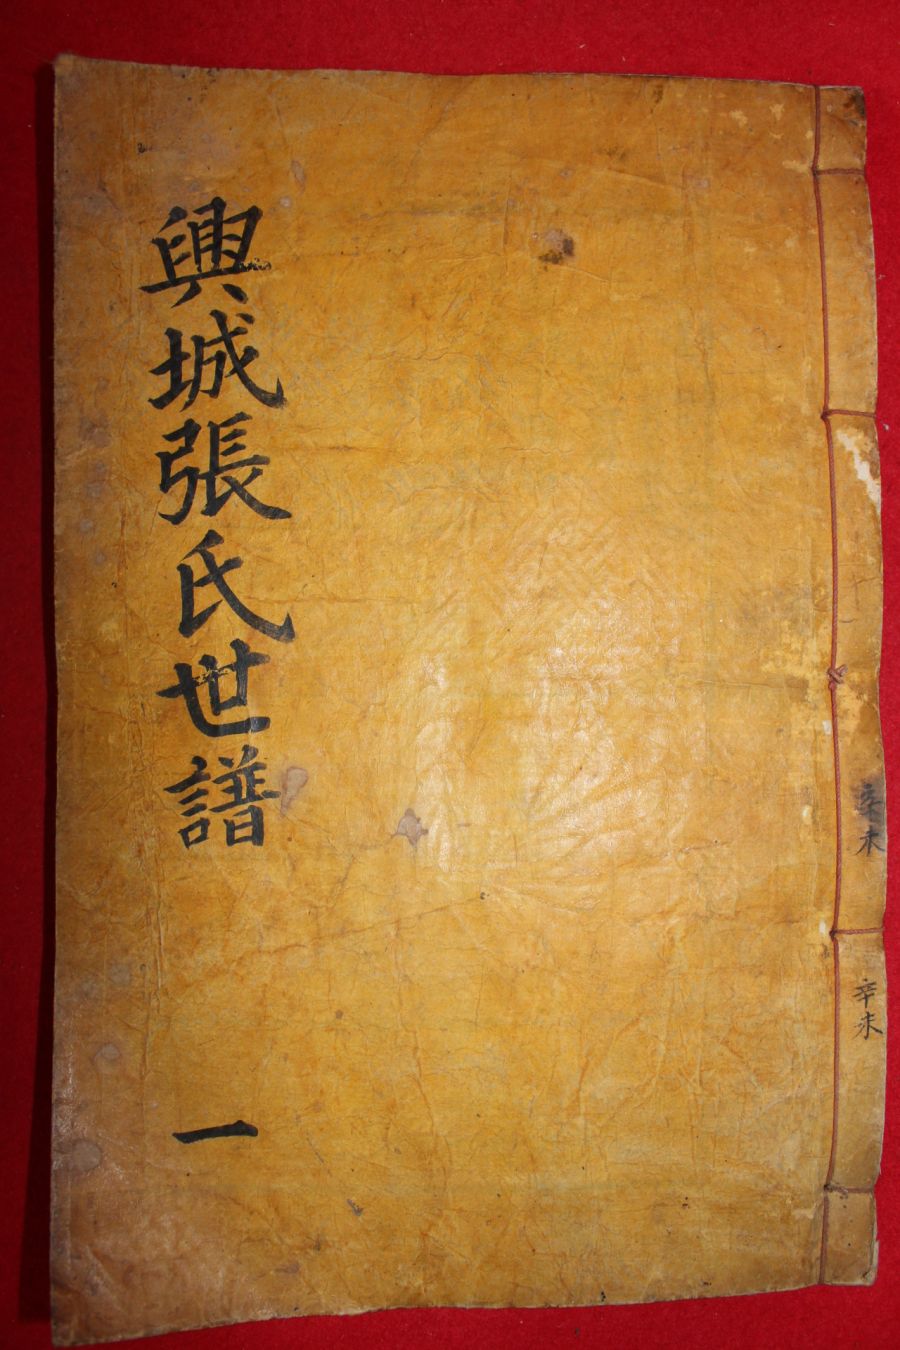 興城張氏世譜 一
辛未
辛未